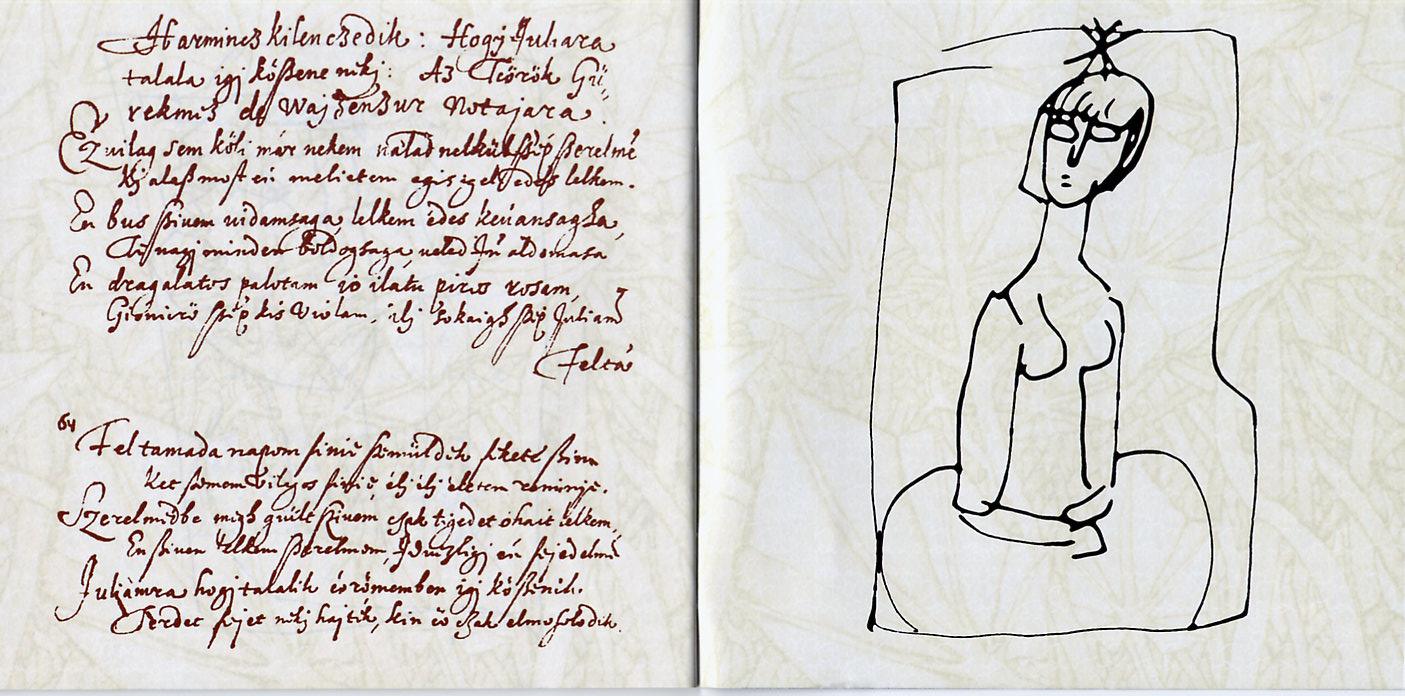 Harmincz kilenczedik: Hogy Juliara
talala igj kößene nekj: Az Török Gü„
rekmez de wajzenzur Notajara.
Ez uilag sem köll már nekem nálad nelkül ßép ßerelmē
Ky alaßmost én melletem egisigel edes lelkem.
En bus ßiuem uidamsaga, lelkem édes keuansagha,
Te uagj minden boldogsaga, ueled Jn̄ aldomasa
En dragalatos palotam ió ilatu piros rosam,
Giönierö ßép kis violam, ilj sokaigh ßép Juliam̄
Feltá
64
Feltamada napom finie ßemüldek fekete ßinn
Két ßemem Világos finie, élj élj életem reminie.
Szerelmedbe miǵh güilt ßiuem csak tigedet óhait lelkem,
En ßiuem lelkem ßerelmem, Jduezligj én fejedelmē
Juliámra hogj talalék örömemben igj kößenék.
Térdet fejet nekj hajték, kin eö csak elmosolodék.